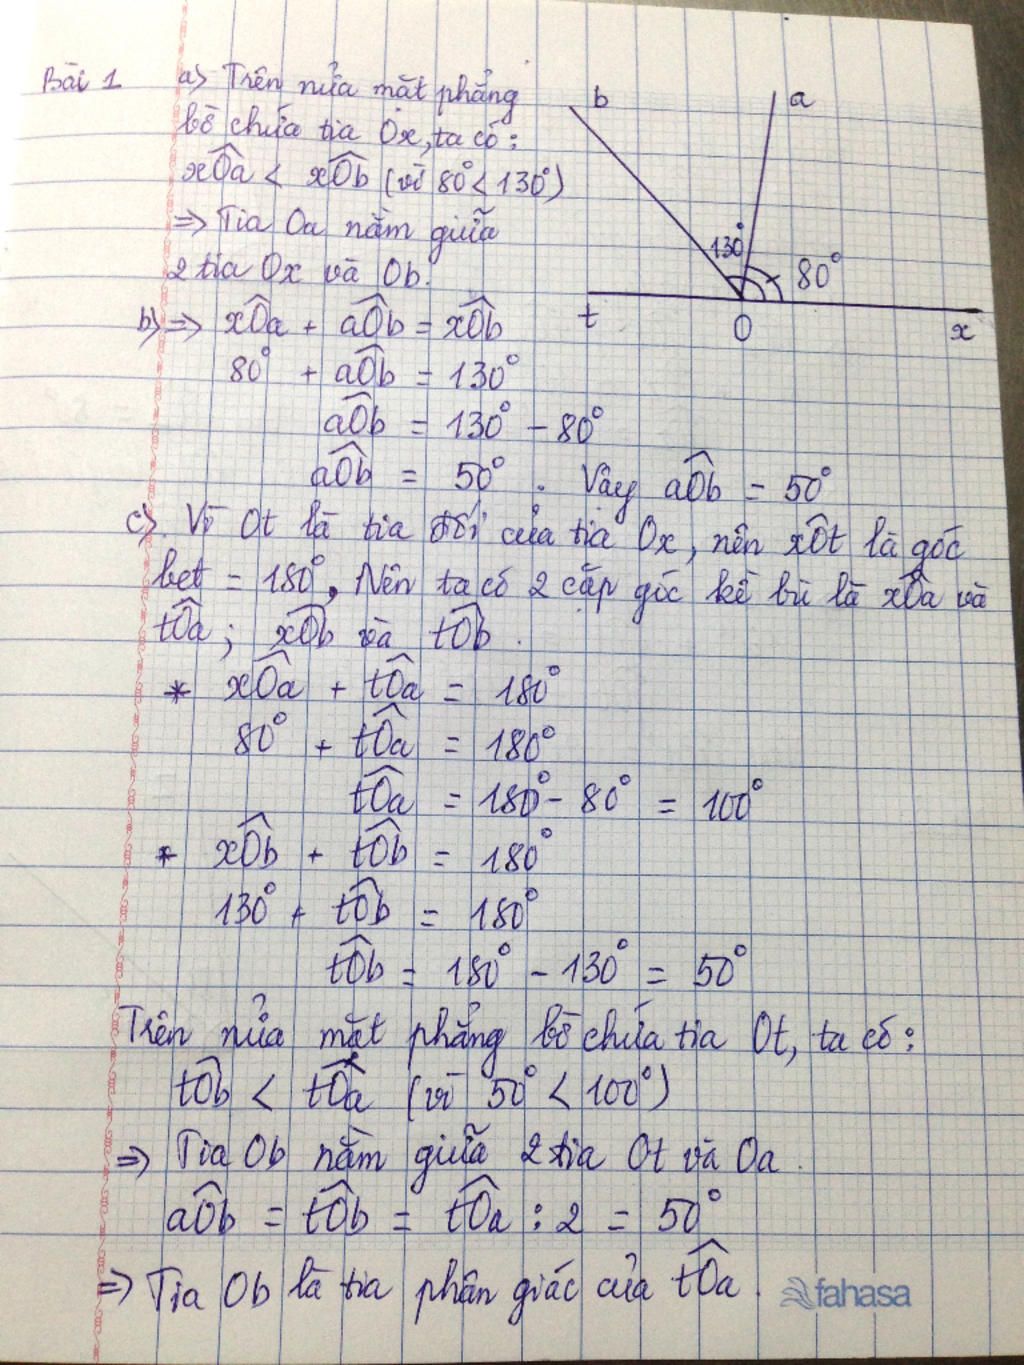 Bài 1 a) Trên nửa mặt phẳng
bờ chứa tia Ox, ta có:
xÔa < xÔb (vì 80° < 130°)
=> Tia Oa nằm giữa
2 tia Ox và Ob.
b a
130° 80°
t O x
b) => xÔa + aÔb = xÔb
80° + aÔb = 130°
aÔb = 130° - 80°
aÔb = 50°. Vậy aÔb = 50°
c). Vì Ot là tia đối của tia Ox, nên xÔt là góc
bet = 180°, Nên ta có 2 cặp góc kề bù là xÔa và
tÔa; xÔb và tÔb.
* xÔa + tÔa = 180°
80° + tÔa = 180°
tÔa = 180° - 80° = 100°
* xÔb + tÔb = 180°
130° + tÔb = 180°
tÔb = 180° - 130° = 50°
Trên nửa mặt phẳng bờ chứa tia Ot, ta có:
tÔb < tÔa (vì 50° < 100°)
=> Tia Ob nằm giữa 2 tia Ot và Oa.
aÔb = tÔb = tÔa : 2 = 50°
=> Tia Ob là tia phân giác của tÔa.
fahasa